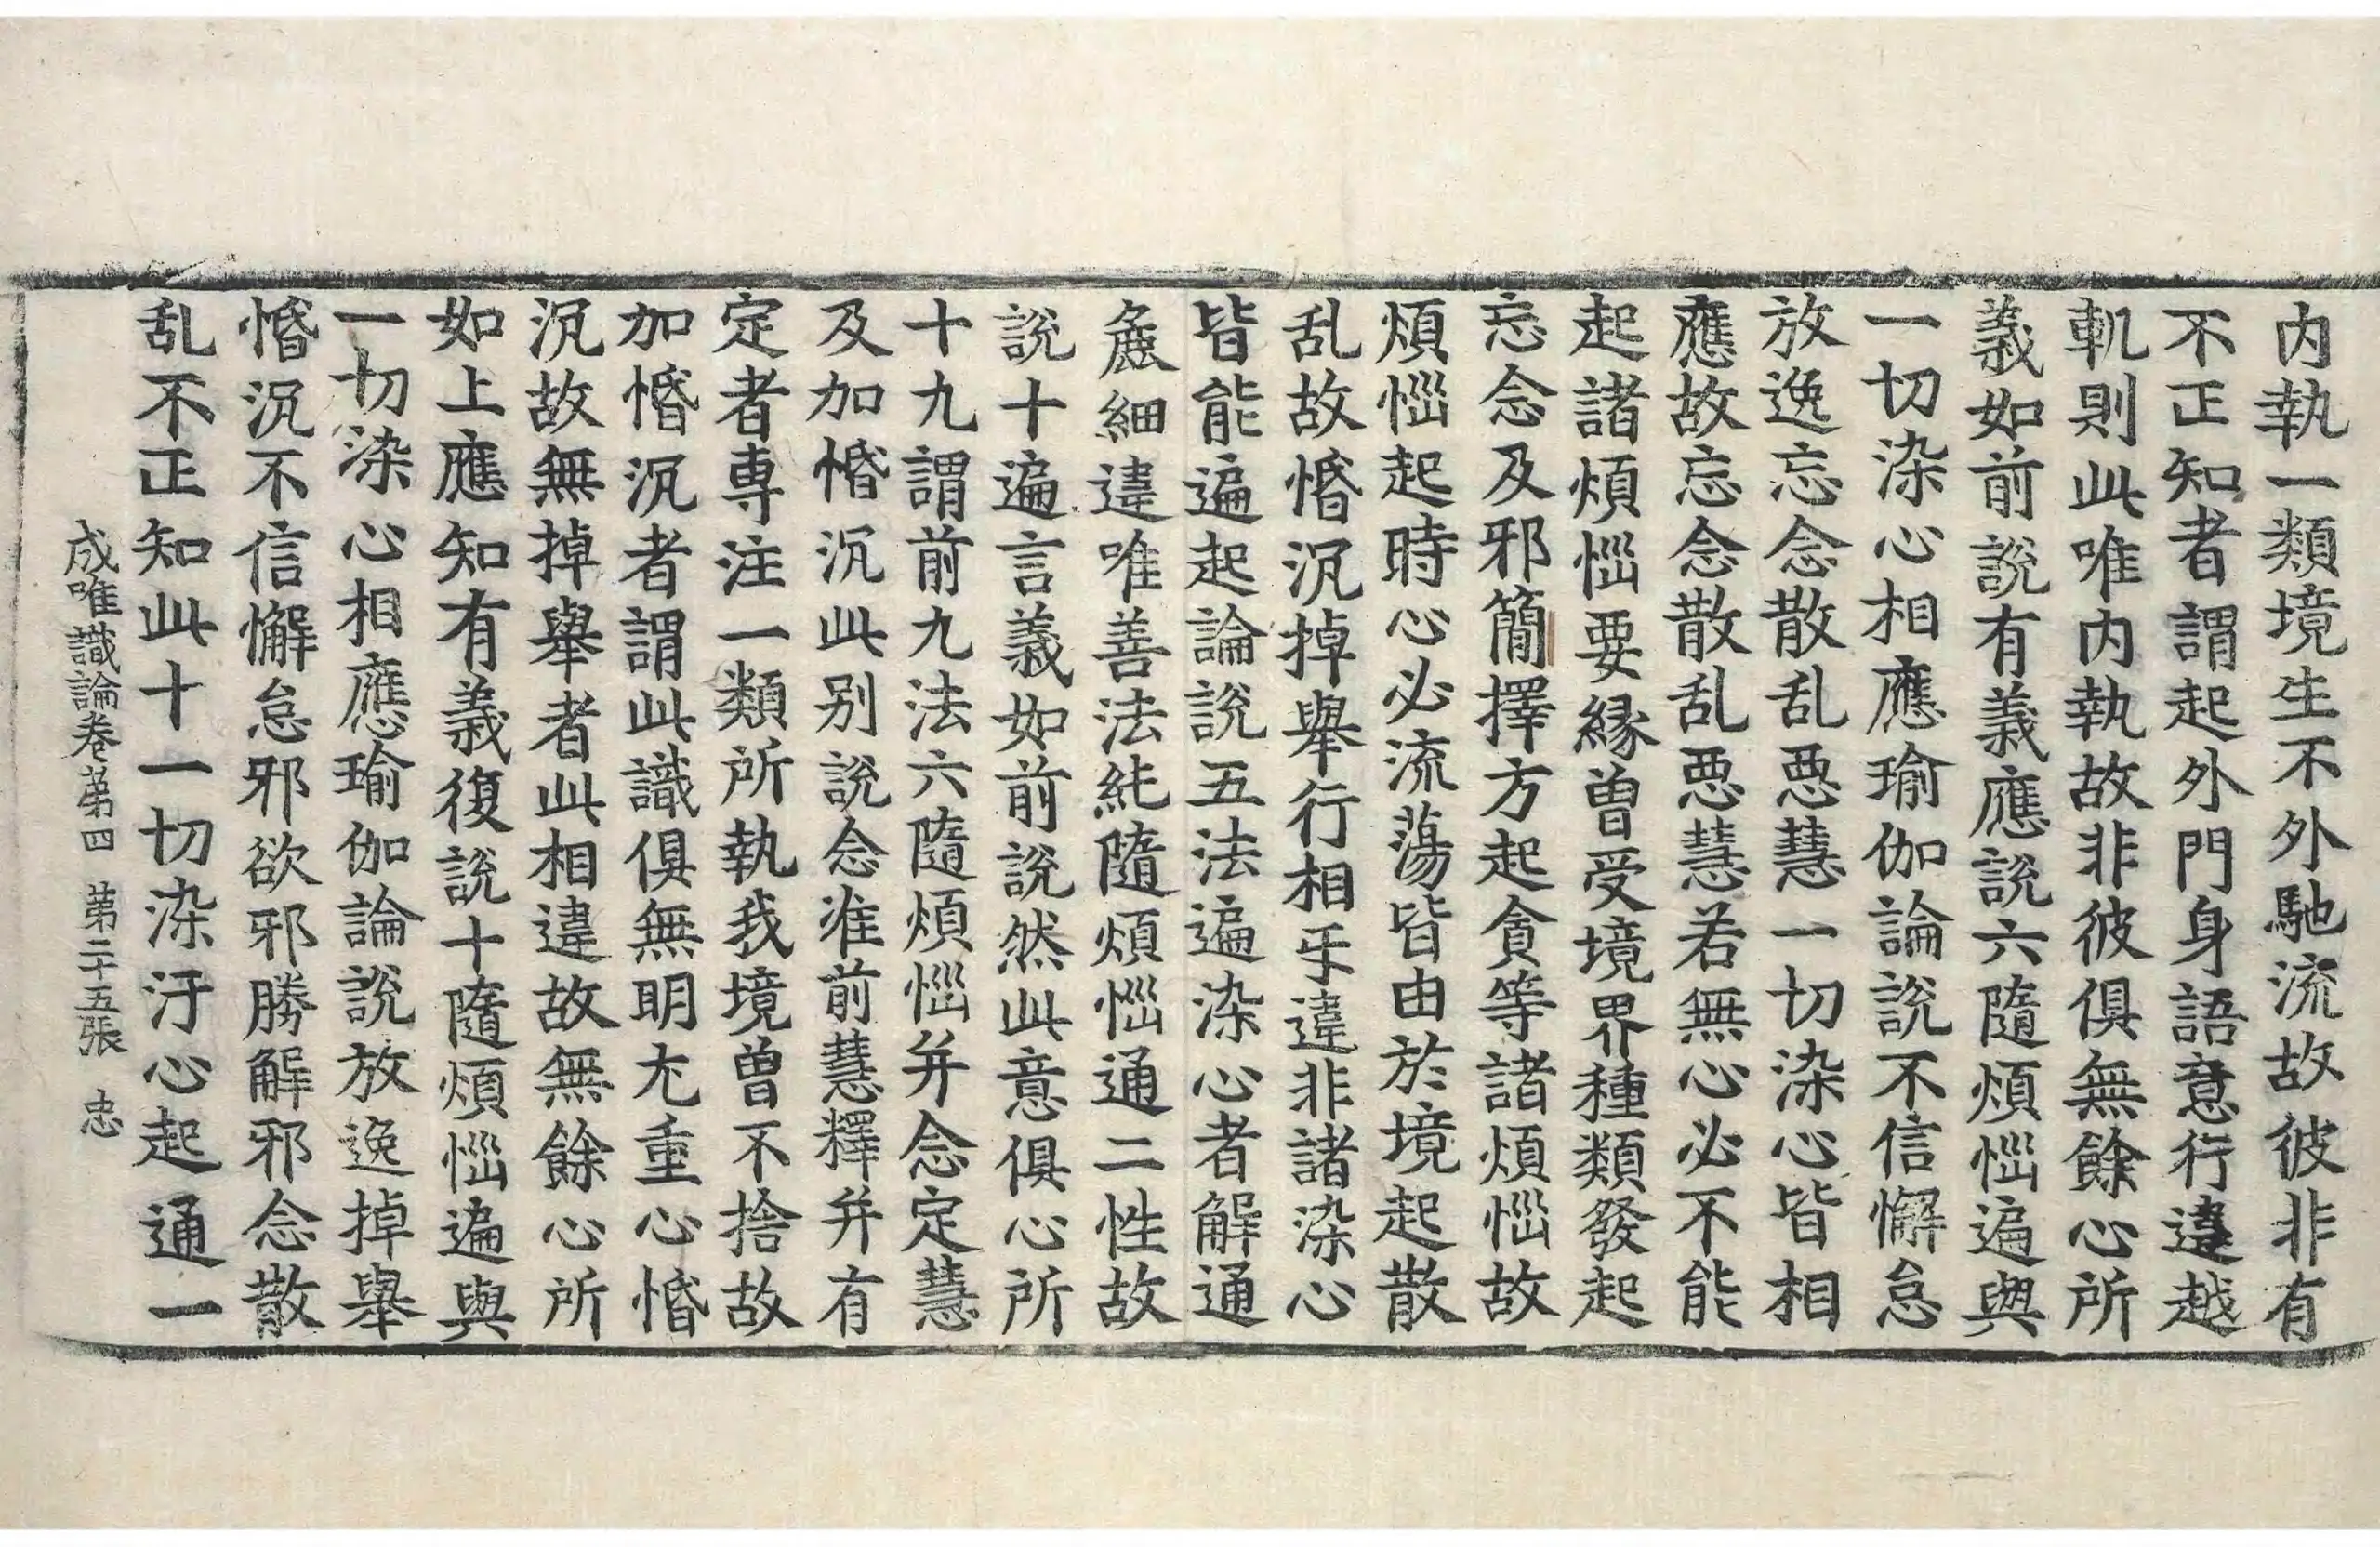 内執一類境生不外馳流故彼非有
不正知者謂起外門身語意行違越
軌則此唯内執故非彼俱無餘心所
義如前說有義應說六隨煩惱遍與
一切染心相應瑜伽論說不信懈怠
放逸忘念散乱惡慧一切染心皆相
應故忘念散乱惡慧若無心必不能
起諸煩惱要緣曾受境界種類發起
忘念及邪簡擇方起貪等諸煩惱故
煩惱起時心必流蕩皆由於境起散
乱故惛沉掉舉行相乎違非諸染心
皆能遍起論說五法遍染心者解通
麁細違唯善法純隨煩惱通二性故
說十遍言義如前說然此意俱心所
十九謂前九法六隨煩惱并念定慧
及加惛沉此別說念准前慧釋并有
定者專注一類所執我境曾不捨故
加惛沉者謂此識俱無明尤重心惛
沉故無掉舉者此相違故無餘心所
如上應知有義復說十隨煩惱遍與
一切染心相應瑜伽論說放逸掉舉
惛沉不信懈怠邪欲邪勝解邪念散
乱不正知此十一切染汙心起通一
成唯識論卷第四 第二十五張 忠